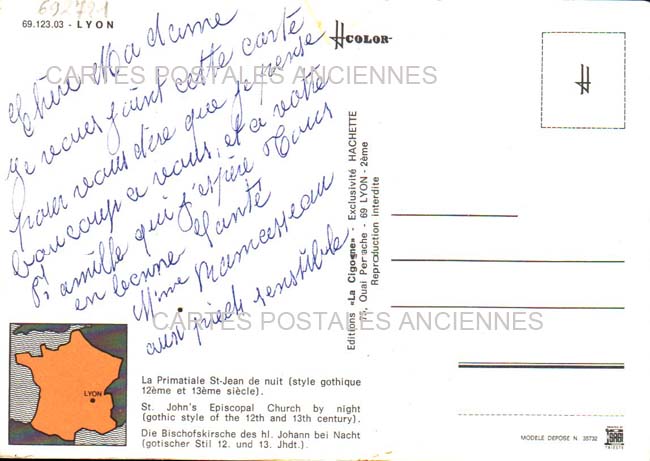 69.123.03 - LYON
COLOR
Chère Madame
Je vous joint cette carte
pour vous dire que je pense
beaucoup a vous, et a votre
famille qui j'espère tous
en bonne santé
Mme
aux pieds sensible.
CARTES POSTALES ANCIENNES
CARTES POSTALES ANCIENNES
Editions «La Cigogne» Exclusivité HACHETTE
Quai Perrache - 69 LYON - 2ème
Reproduction interdite
LYON
La Primatiale St-Jean de nuit (style gothique
12ème et 13ème siècle).
St. John's Episcopal Church by night
(gothic style of the 12th and 13th century).
Die Bischofskirche des hl. Johann bei Nacht
(gotischer Stil 12. und 13. Jhdt.).
MODÈLE DÉPOSÉ N. 35732